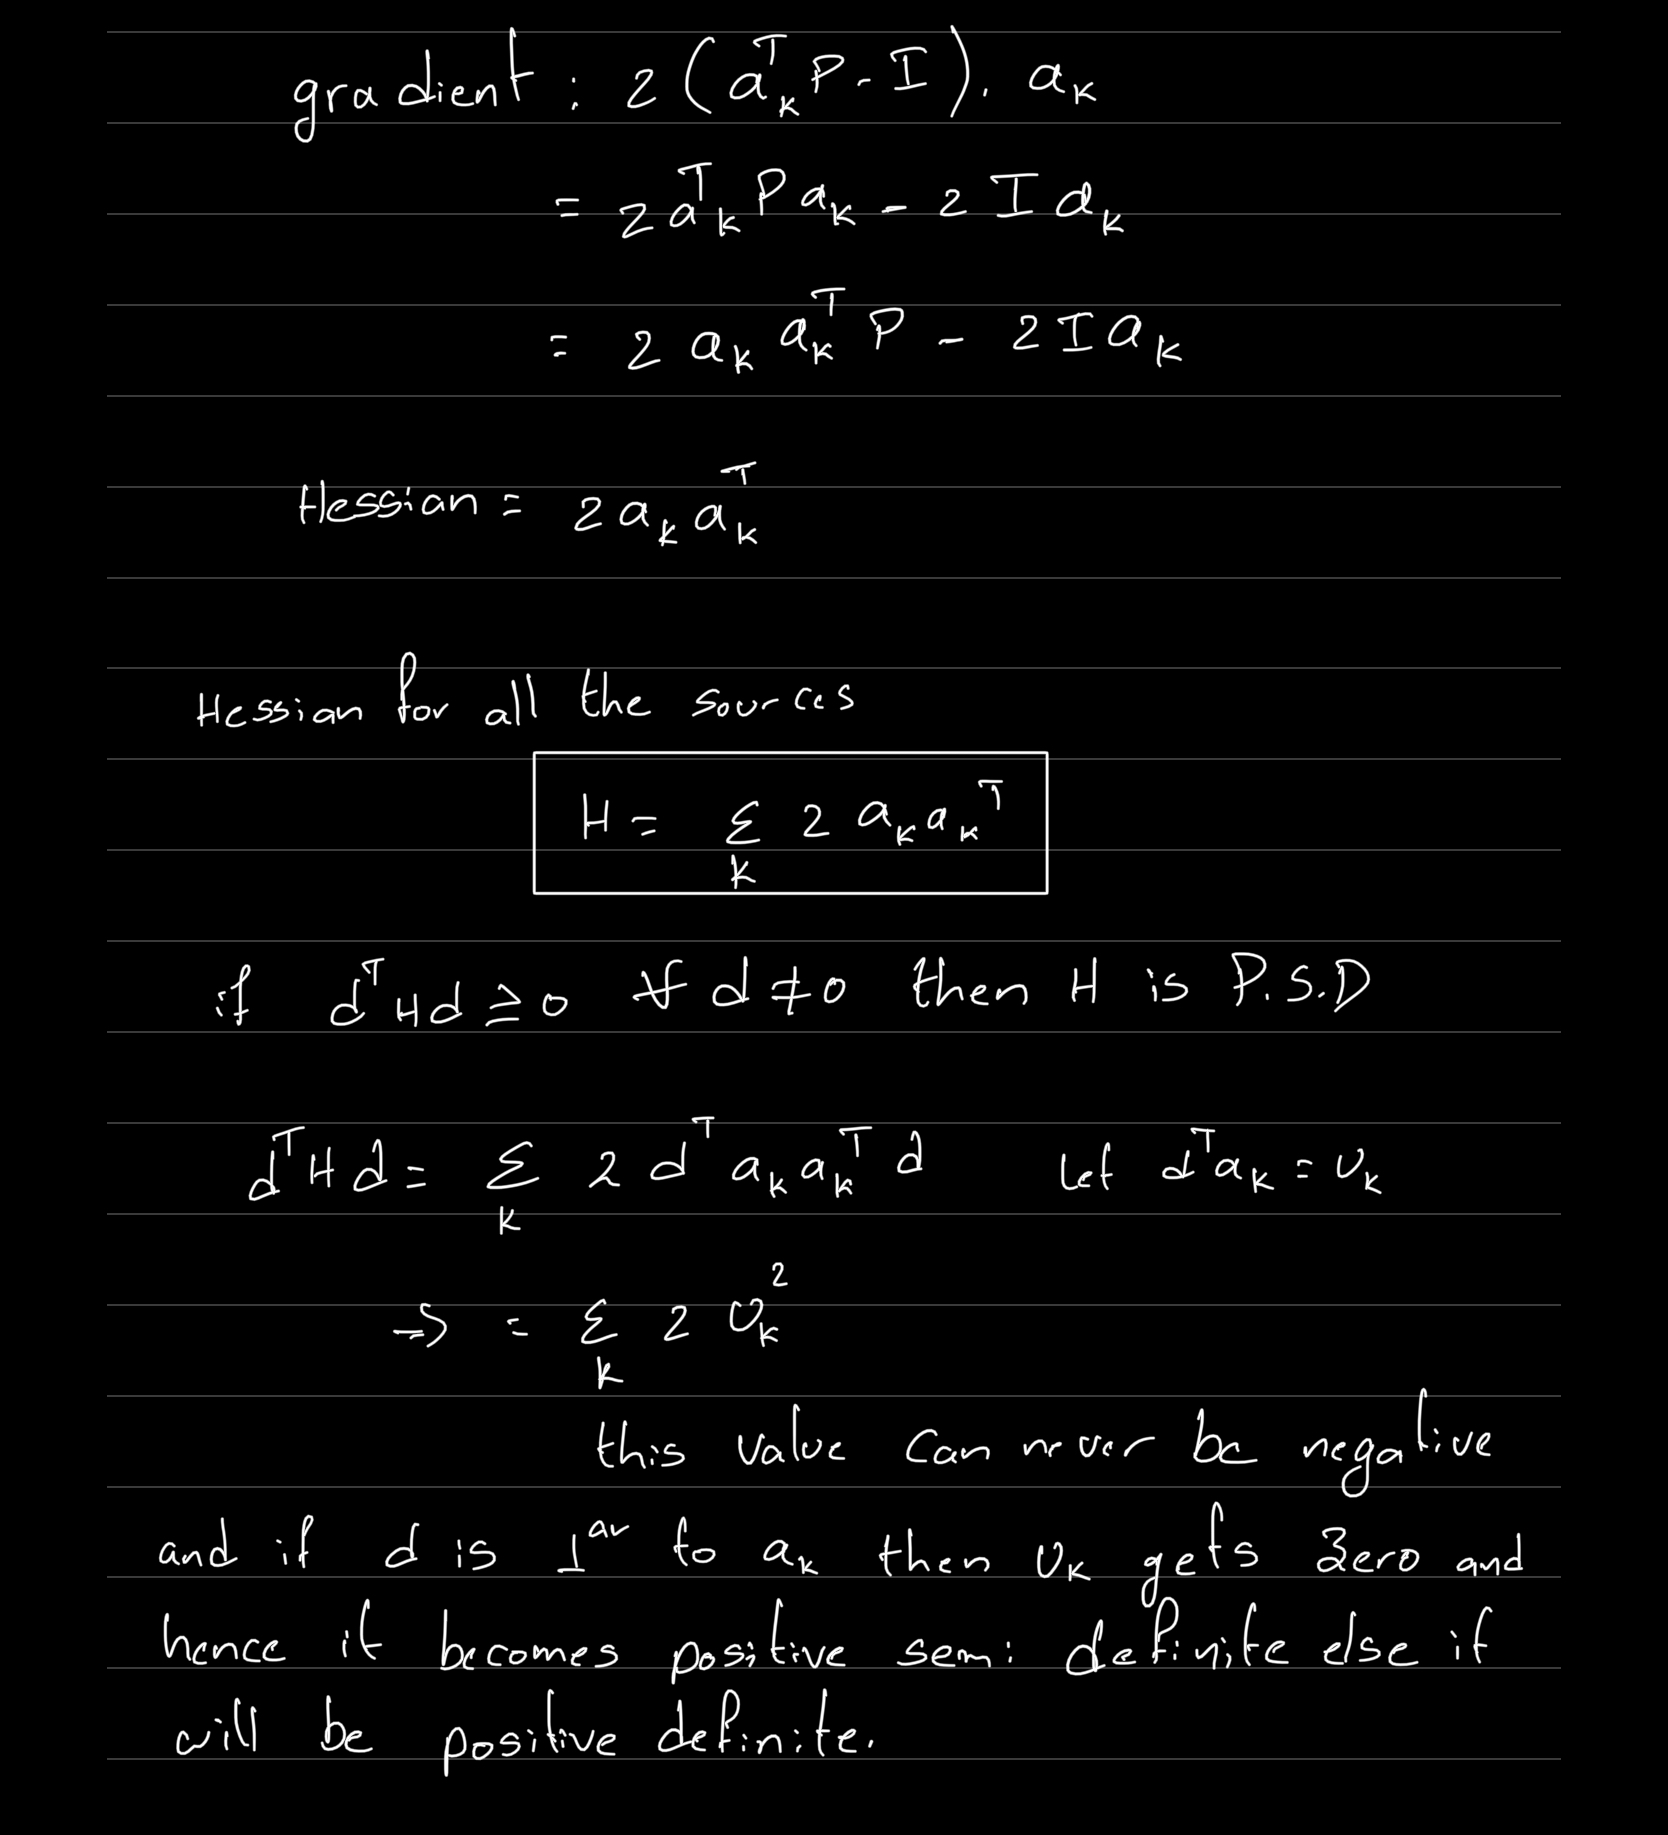 gradient : 2 (aₖᵀ P - I) . aₖ
= 2 aₖᵀ P aₖ - 2 I aₖ
= 2 aₖ aₖᵀ P - 2 I aₖ
Hessian = 2 aₖ aₖᵀ
Hessian for all the sources
H = Σₖ 2 aₖ aₖᵀ
if dᵀHd ≥ 0 ∀ d ≠ 0 then H is P.S.D
dᵀHd = Σₖ 2 dᵀ aₖ aₖᵀ d Let dᵀaₖ = υₖ
⇒ = Σₖ 2 υₖ²
this value can never be negative
and if d is ⊥ᵃʳ to aₖ then υₖ gets zero and
hence it becomes positive semi definite else it
will be positive definite.